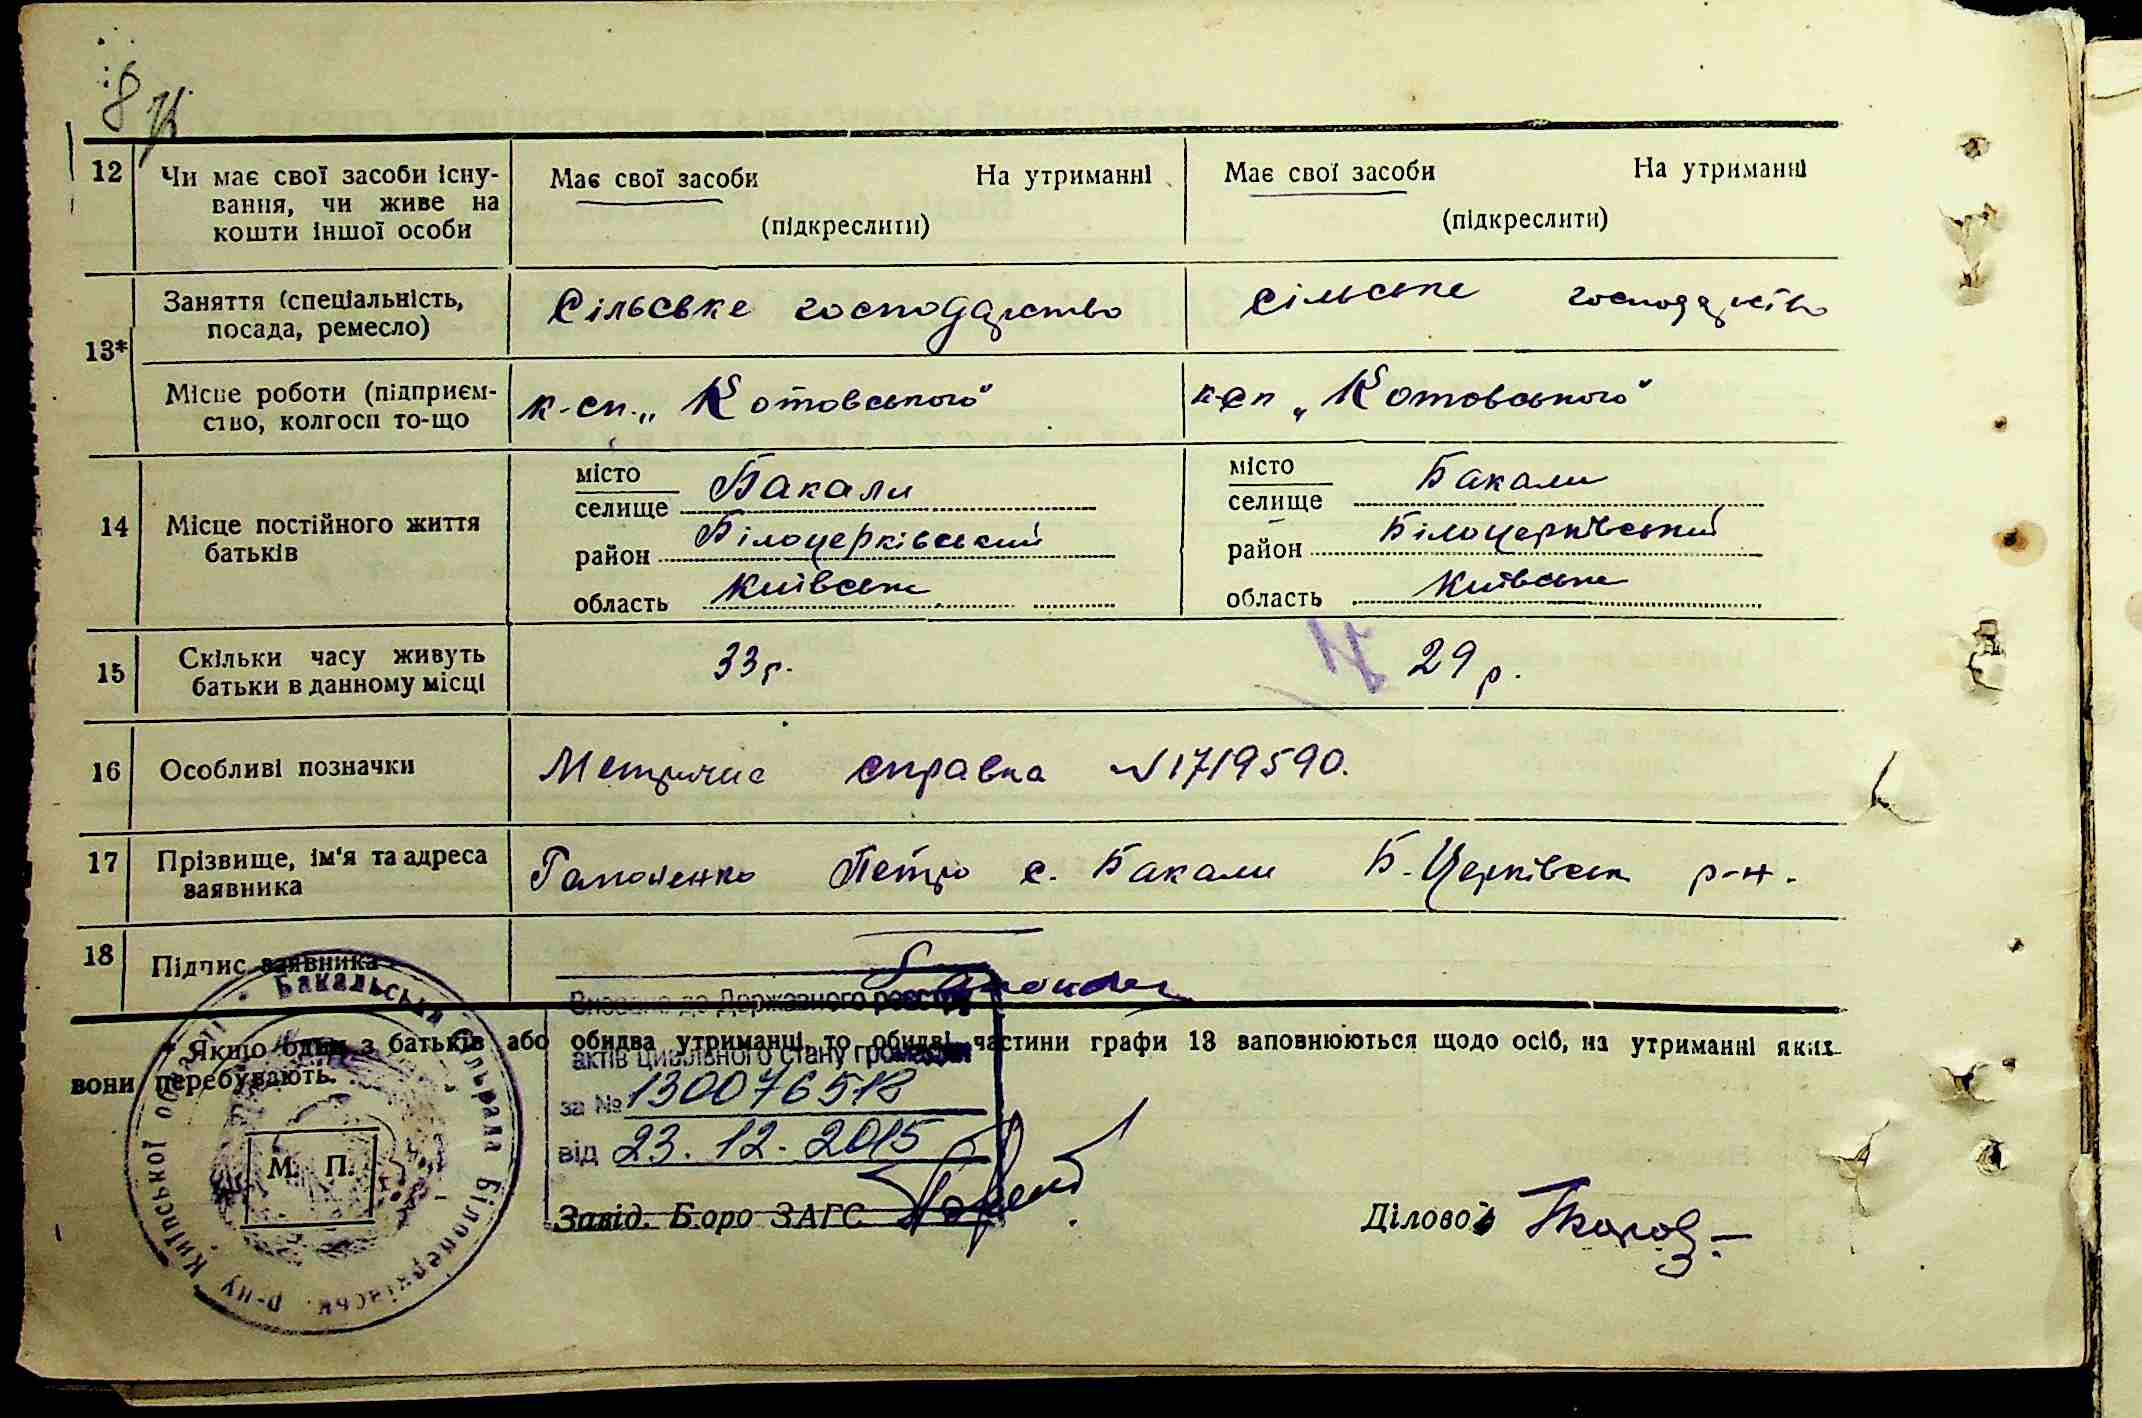 12 Чи має свої засоби існу-
вання, чи живе на
кошти іншої особи
Має свої засоби На утриманні
(підкреслити)
Має свої засоби На утриманні
(підкреслити)
13*
Заняття (спеціальність,
посада, ремесло)
Сільське господарство
сільське господарство
Місце роботи (підприєм-
ство, колгосп то-що
к-сп. „Котовського"
к-сп „Котовського"
14 Місце постійного життя
батьків
місто
селище Бакали
район Білоцерківський
область Київська
місто
селище Бакали
район Білоцерківський
область Київська
15 Скільки часу живуть
батьки в данному місці
33 р.
29 р.
16 Особливі позначки
Метрична справка №1719590.
17 Прізвище, ім'я та адреса
заявника
Петро с. Бакали Б. Церківськ р-н.
18 Підпис заявника
* Якщо один з батьків або обидва утриманці, то обидві частини графи 13 заповнюються щодо осіб, на утриманні яких
вони перебувають.
Внесено до Державного реєстру
актів цивільного стану громадян
за № 130076518
від 23.12.2015
Бакальська сільрада Білоцерківськ. р-ну Київської області
М. П.
Завід. Бюро ЗАГС
Діловод